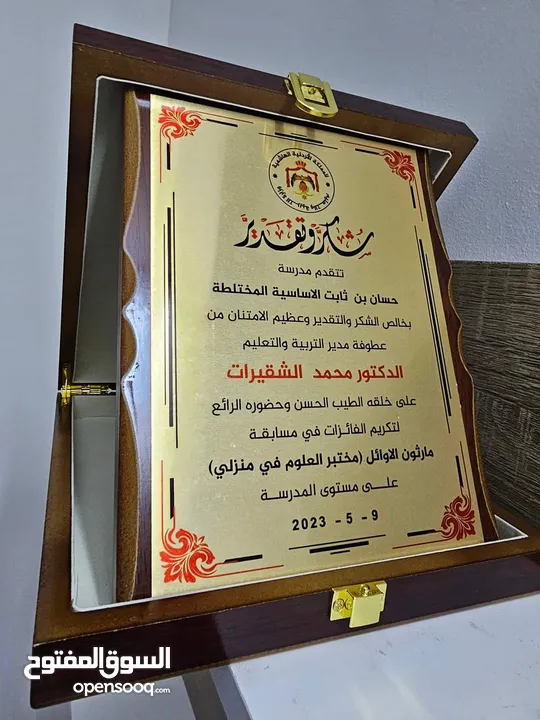 المملكة الأردنية الهاشمية
شكر وتقدير
تتقدم مدرسة
حسان بن ثابت الاساسية المختلطة
بخالص الشكر والتقدير وعظيم الامتنان من
عطوفة مدير التربية والتعليم
الدكتور محمد الشقيرات
على خلقه الطيب الحسن وحضوره الرائع
لتكريم الفائزات في مسابقة
مارثون الاوائل (مختبر العلوم في منزلي)
على مستوى المدرسة
2023 - 5 - 9
السوق المفتوح
opensooq.com